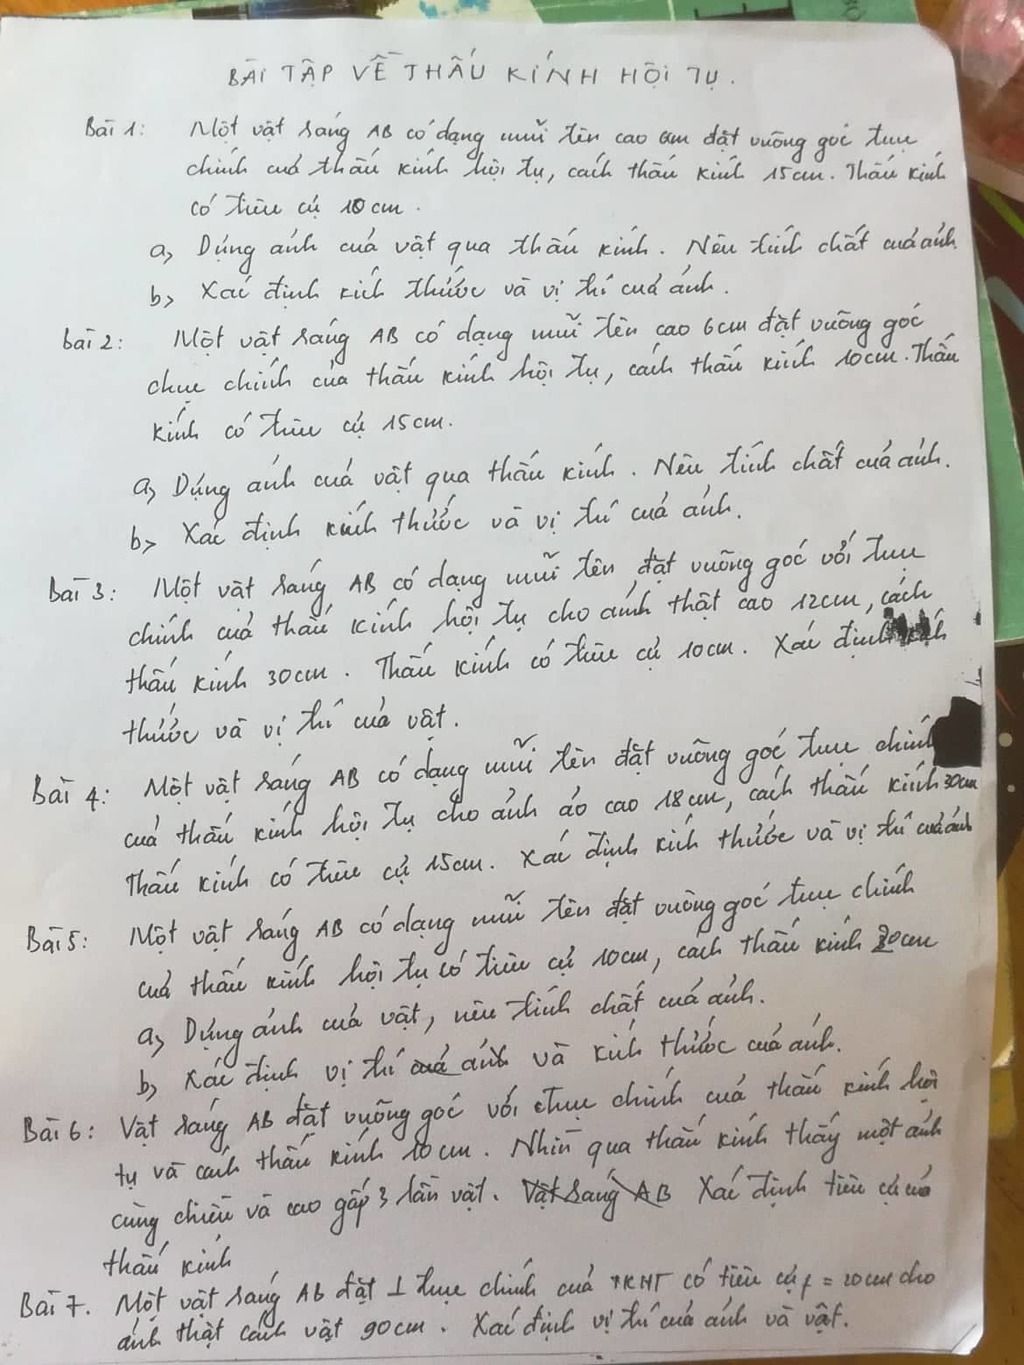 BÀI TẬP VỀ THẤU KÍNH HỘI TỤ.
Bài 1: Một vật sáng AB có dạng mũi tên cao 6cm đặt vuông góc trục
chính của thấu kính hội tụ, cách thấu kính 15cm. Thấu kính
có tiêu cự 10cm.
a, Dựng ảnh của vật qua thấu kính. Nêu tính chất của ảnh.
b> Xác định kích thước và vị trí của ảnh.
Bài 2: Một vật sáng AB có dạng mũi tên cao 6cm đặt vuông góc
chục chính của thấu kính hội tụ, cách thấu kính 10cm. Thấu
kính có tiêu cự 15cm.
a, Dựng ảnh của vật qua thấu kính. Nêu tính chất của ảnh.
b> Xác định kính thước và vị trí của ảnh.
Bài 3: Một vật sáng AB có dạng mũi tên đặt vuông góc với trục
chính của thấu kính hội tụ cho ảnh thật cao 12cm, cách
thấu kính 30cm. Thấu kính có tiêu cự 10cm. Xác định kính
thước và vị trí của vật.
Bài 4: Một vật sáng AB có dạng mũi tên đặt vuông góc trục chính
của thấu kính hội tụ cho ảnh ảo cao 18cm, cách thấu kính 30cm
Thấu kính có tiêu cự 15cm. Xác định kích thước và vị trí của ảnh
Bài 5: Một vật sáng AB có dạng mũi tên đặt vuông góc trục chính
của thấu kính hội tụ có tiêu cự 10cm, cách thấu kính 20cm
a, Dựng ảnh của vật, nêu tính chất của ảnh.
b, Xác định vị trí của ảnh và kính thước của ảnh.
Bài 6: Vật sáng AB đặt vuông góc với trục chính của thấu kính hội
tụ và cách thấu kính 10cm. Nhìn qua thấu kính thấy một ảnh
cùng chiều và cao gấp 3 lần vật. Vật sáng AB Xác định tiêu cự của
thấu kính
Bài 7. Một vật sáng AB đặt ⊥ trục chính của TKHT có tiêu cự f = 20cm cho
ảnh thật cách vật 90cm. Xác định vị trí của ảnh và vật.